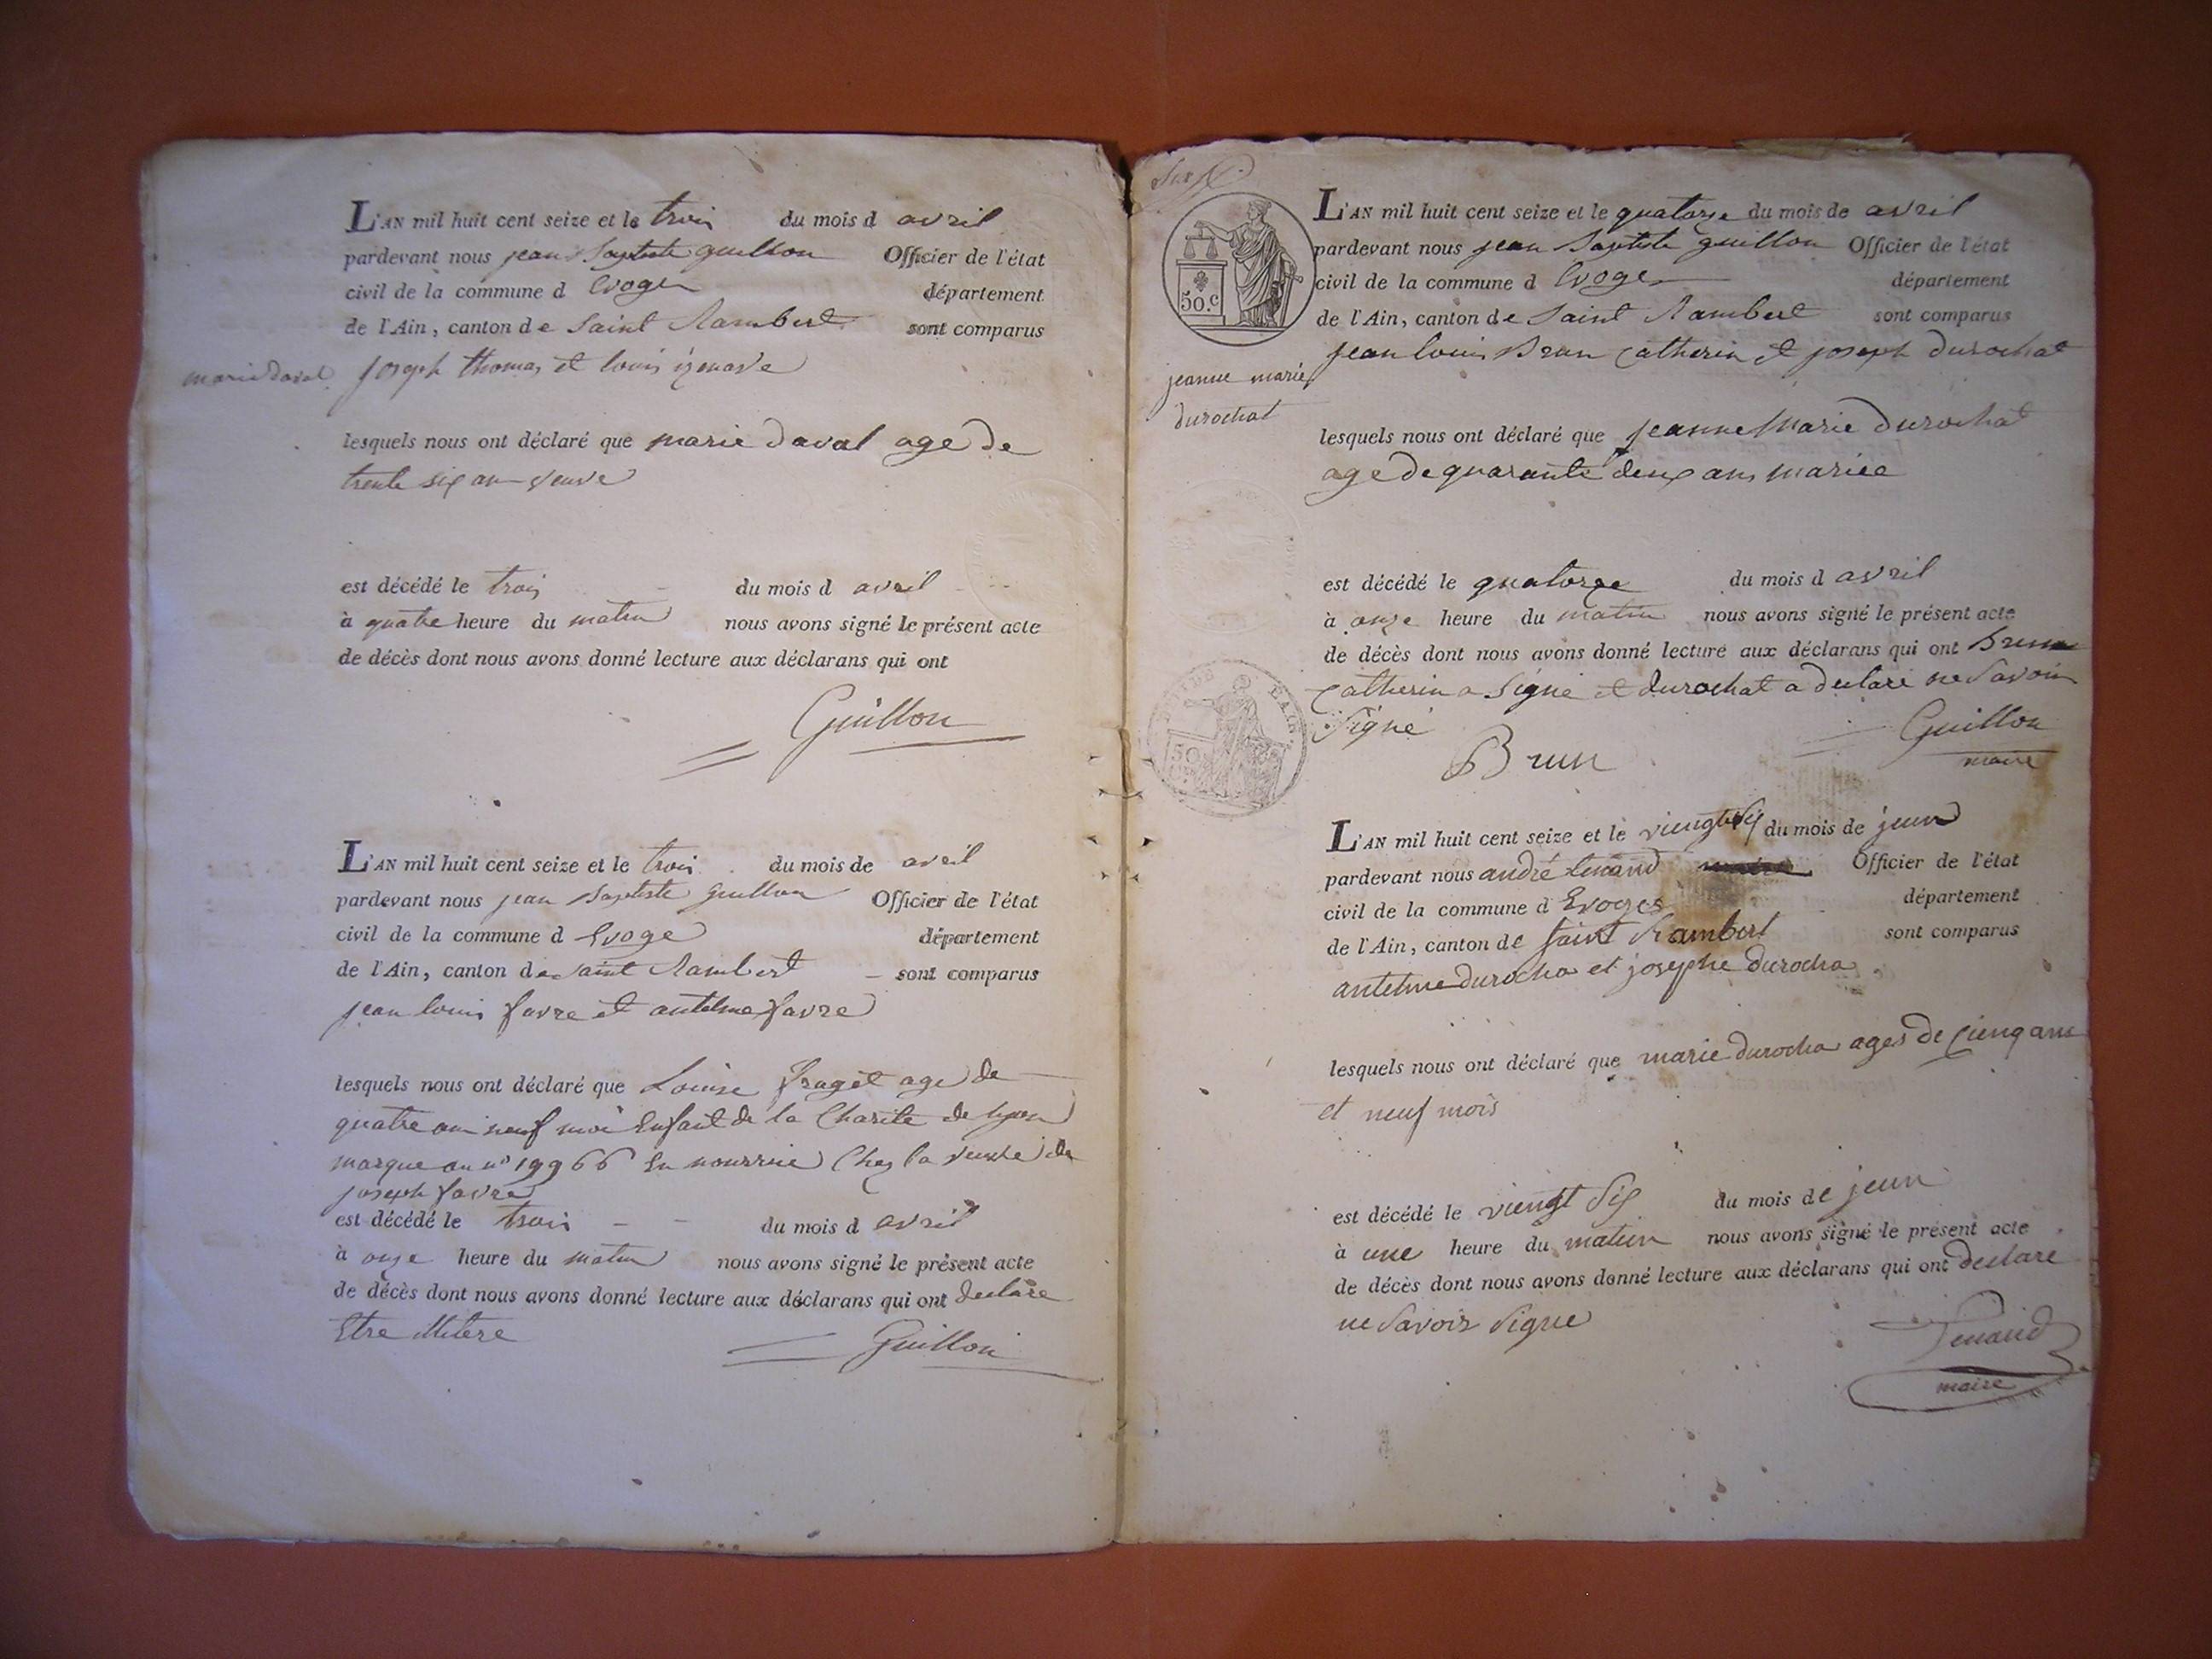 L'AN mil huit cent seize et le trois du mois d avril
pardevant nous jean Baptiste guillon Officier de l'état
civil de la commune d Evoge département
de l'Ain, canton de Saint Rambert sont comparus
marie daval
joseph thomas et louis izenave
lesquels nous ont déclaré que marie daval age de
trente six an veuve
est décédé le trois du mois d avril
à quatre heure du matin nous avons signé le présent acte
de décès dont nous avons donné lecture aux déclarans qui ont
Guillon
L'AN mil huit cent seize et le trois du mois de avril
pardevant nous jean Baptiste guillon Officier de l'état
civil de la commune d Evoge département
de l'Ain, canton de Saint Rambert sont comparus
jean louis favre et antelme favre
lesquels nous ont déclaré que Louise fraget age de
quatre an neuf moi Enfant de la Charite de lyon
marque au n° 19966 En nourrice Chez la veuve de
joseph favre
est décédé le trois du mois d avril
à onze heure du matin nous avons signé le présent acte
de décès dont nous avons donné lecture aux déclarans qui ont declare
Etre illitere
Guillon
Six
50.c
L'AN mil huit cent seize et le quatorze du mois de avril
pardevant nous jean Baptiste guillon Officier de l'état
civil de la commune d Evoge département
de l'Ain, canton de Saint Rambert sont comparus
jean louis Brun catherin et joseph durochat
jeanne marie
durochat
lesquels nous ont déclaré que jeanne Marie durochat
age de quarante deux ans mariee
est décédé le quatorze du mois d avril
à onze heure du matin nous avons signé le présent acte
de décès dont nous avons donné lecture aux déclarans qui ont Brun
catherin a Signé et durochat a declaré ne Savoir
Signé
Brun
Guillon
maire
L'AN mil huit cent seize et le viengt Six du mois de jeun
pardevant nous andré tenand Officier de l'état
civil de la commune d Evoges département
de l'Ain, canton de Saint Rambert sont comparus
antelme durocha et josephe durocha
lesquels nous ont déclaré que marie durocha ages de Cienq ans
et neuf mois
est décédé le viengt Six du mois de jeun
à une heure du matien nous avons signé le présent acte
de décès dont nous avons donné lecture aux déclarans qui ont declaré
ne Savoir Signe
Tenand
maire